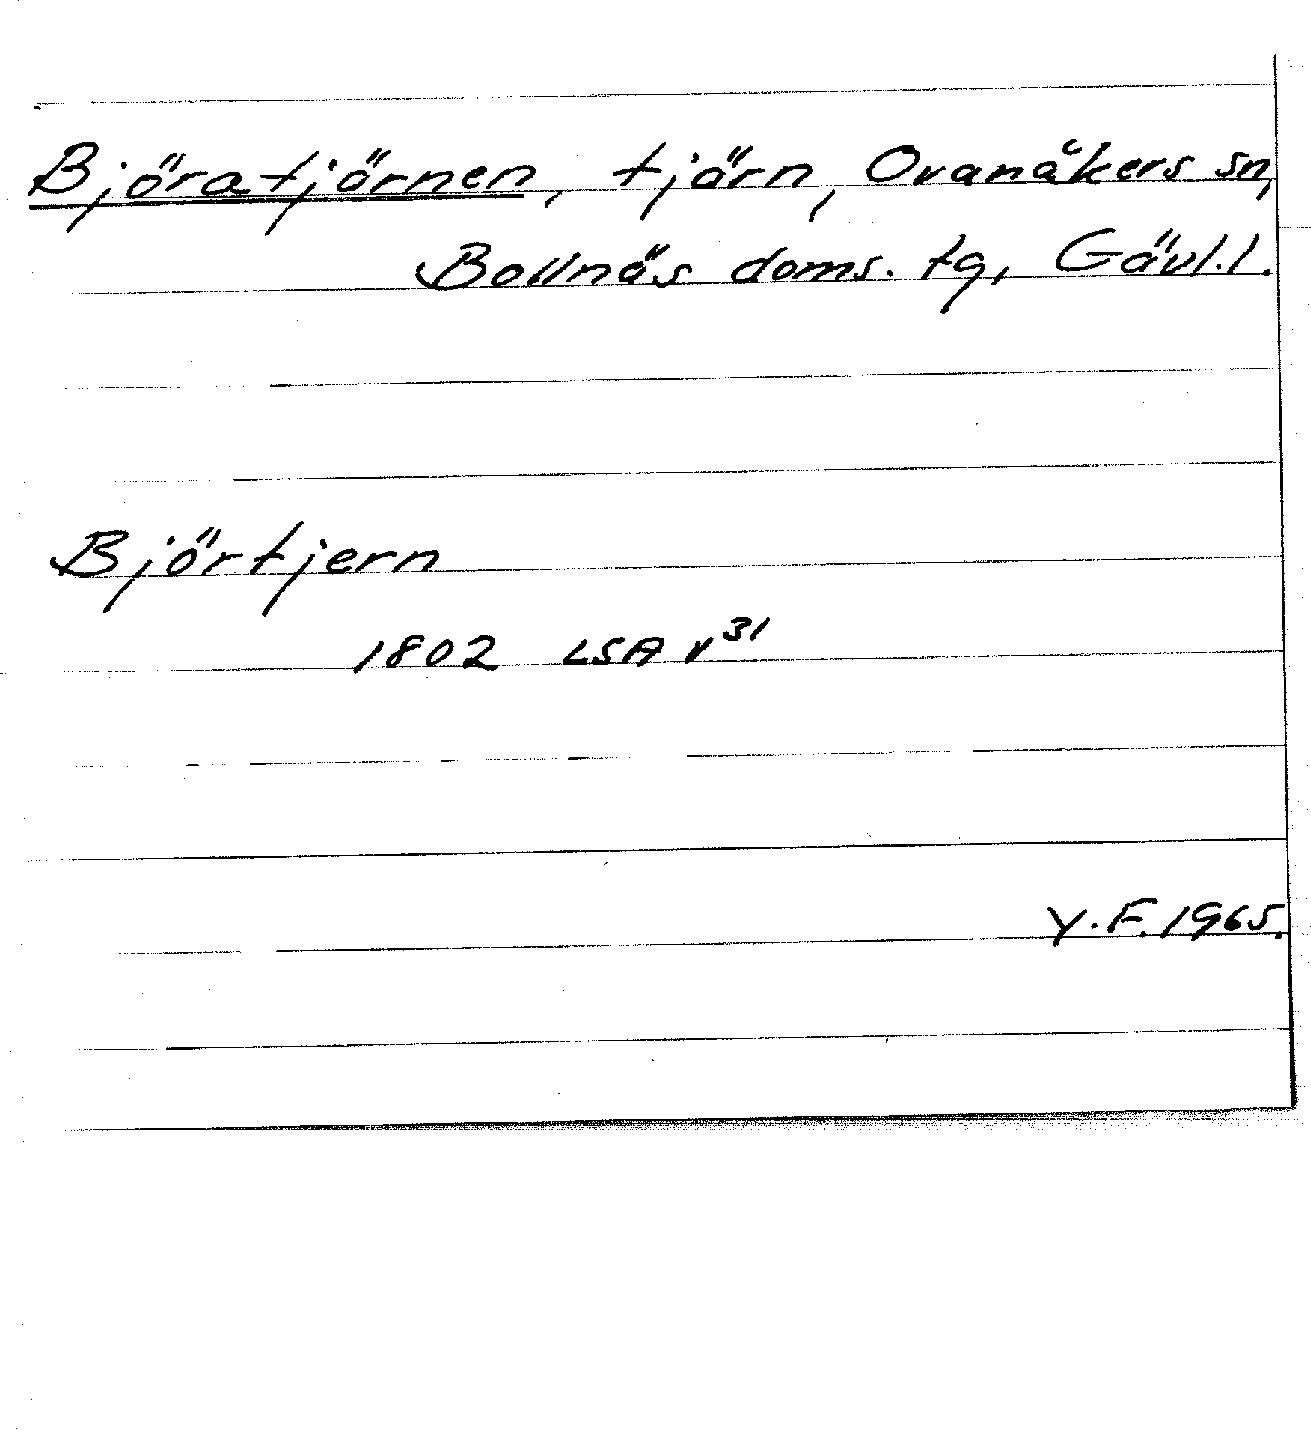 Björatjörnen, tjärn, Ovanåkers sn,
Bollnäs doms. tg, Gävl.l.
Björtjern
1802 LSA v³¹
Y.F. 1965.